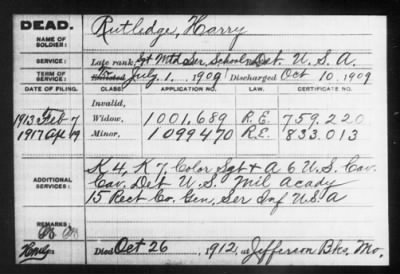 DEAD. Rutledge, Harry
NAME OF SOLDIER:
SERVICE: Late rank, Sgt Mtd Ser. School Det U. S. A.
TERM OF SERVICE: To July 1. 1909 Discharged Oct 10, 1909
DATE OF FILING. CLASS. APPLICATION NO. LAW. CERTIFICATE NO.
Invalid,
1913 Feb 7 Widow, 1001.689 R.E. 759.220
1917 Apr 19 Minor, 1099470 R.E. 833.013
ADDITIONAL SERVICES: K 4, K 7, Color Sgt + A 6 U.S. Cav.
Cav. Det U.S. Mil Acady
15 Rect Co. Gen, Ser Inf U.S.A
REMARKS:
Died Oct 26, 1912, at Jefferson Bks, Mo.